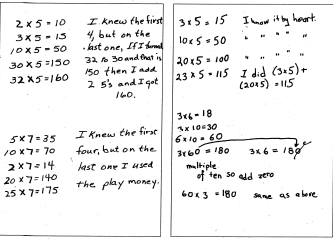 2 x 5 = 10
3 x 5 = 15
10 x 5 = 50
30 x 5 = 150
32 X 5 = 160
I knew the first
4, but on the
last one, If I turned
32 to 30 and that is
150 then I add
2 5's and I got
160.
5 x 7 = 35
10 x 7 = 70
2 x 7 = 14
20 x 7 = 140
25 x 7 = 175
I knew the first
four, but on the
last one I used
the play money.
3 x 5 = 15 I know it by heart.
10 x 5 = 50 " " " "
20 x 5 = 100 " " " "
23 x 5 = 115 I did (3x5) +
(20x5) = 115
3 x 6 = 18
3 x 10 = 30
6 x 10 = 60
3 x 60 = 180 3 x 6 = 180
multiple
of ten so add zero
60 x 3 = 180 same as above